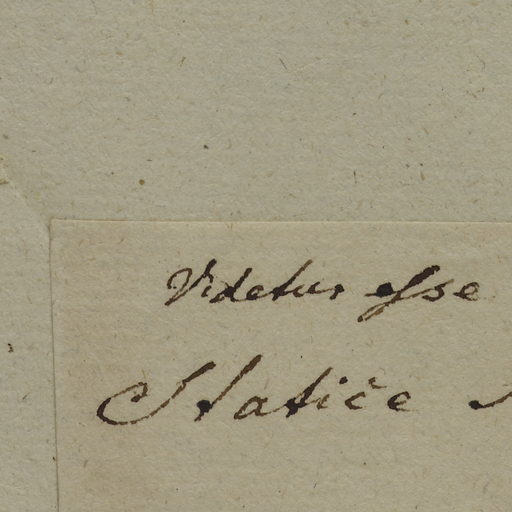 Videtur esse
Statice